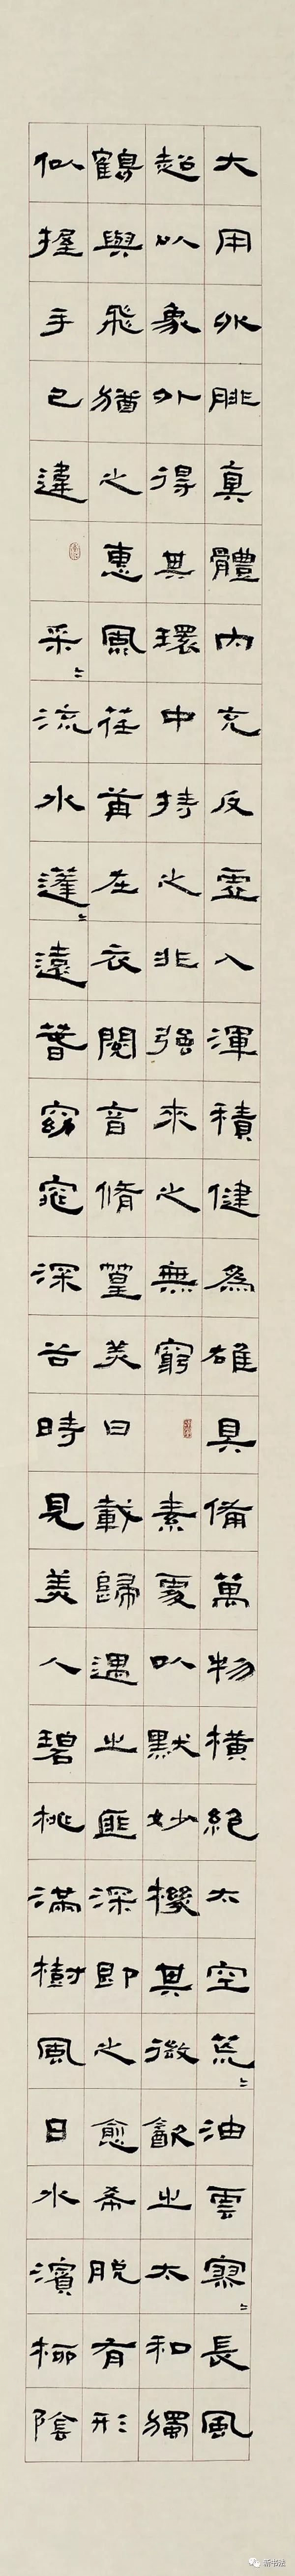 大用外腓真體內充反虛入渾積健為雄具備萬物橫絕太空荒〻油雲寥〻長風
超以象外得其環中持之非強來之無窮 素處以默妙機其微飲之太和獨
鶴與飛猶之惠風荏苒在衣閱音脩篁美曰載歸遇之匪深即之愈希脫有形
似握手已違 采〻流水蓬〻遠春窈窕深谷時見美人碧桃滿樹風日水濱柳陰
新书法